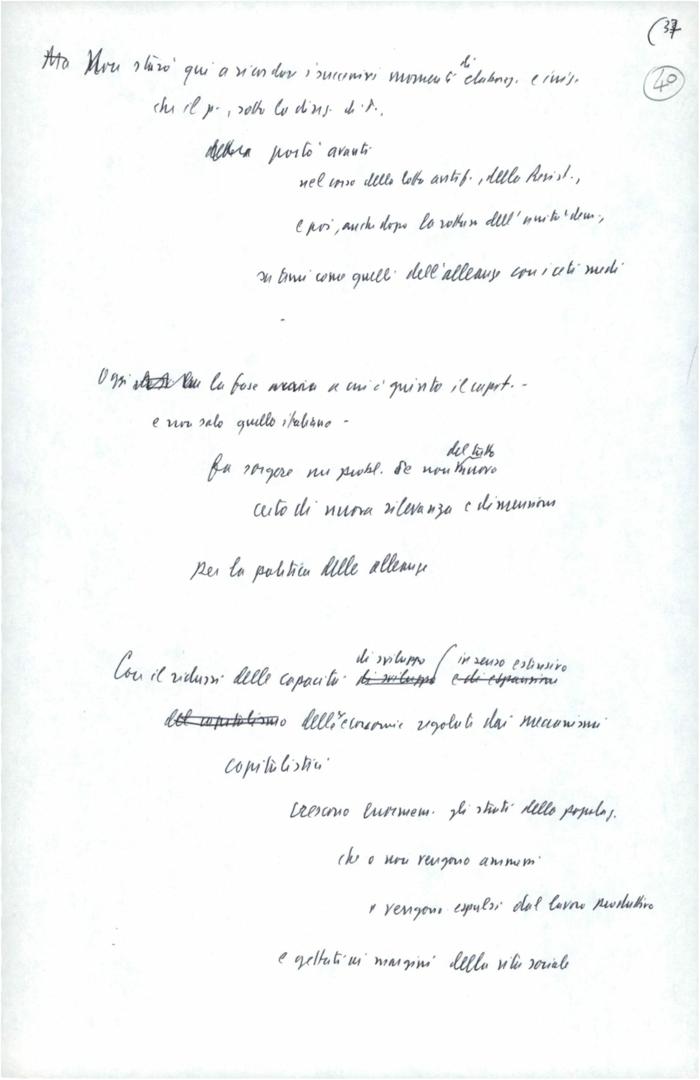 (37
40
Ma Non starò qui a ricordar i successivi momenti di elaboraz. e iniz.
che il p., sotto la direz. di T.,
portò avanti
nel corso della lotta antif., della Resist.,
e poi, anche dopo la rottura dell'unità dem.,
su temi come quelli dell'alleanza con i ceti medi
-
Oggi la fase a cui è giunto il capit. -
e non solo quello italiano -
fa sorgere un probl. se non del tutto nuovo
certo di nuova rilevanza e dimensioni
per la politica delle alleanze
Con il ridursi delle capacità di sviluppo di sviluppo in senso estensivo e di espansione
del capitalismo delle economie regolate dai meccanismi
capitalistici
crescono enormem. gli strati della popolaz.
che o non vengono ammessi
o vengono espulsi dal lavoro produttivo
e gettati ai margini della vita sociale